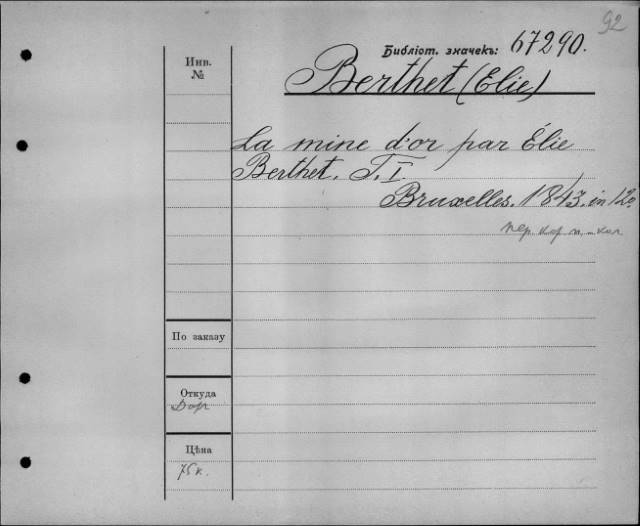 92
Библіот. значекъ: 67290.
Инв.
№
Berthet (Elie)
La mine d'or par Élie
Berthet. T. I.
Bruxelles. 1843. in 12º
пер. кор. п.
По заказу
Откуда
Дор
Цѣна
75 к.